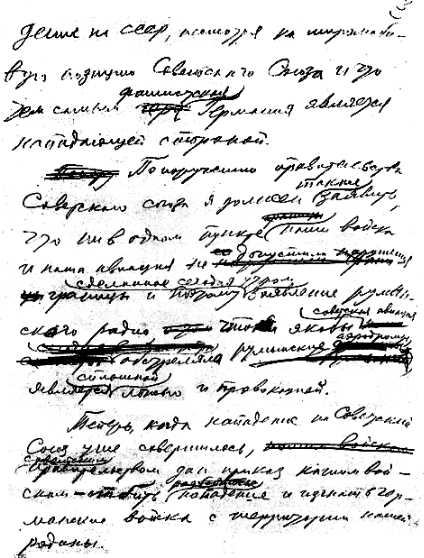 дение на СССР, несмотря на миролюби-
вую позицию Советского Союза и что
тем самым фашистская Германия является
нападающей стороной.
По поручению правительства
Советского союза я должен также заявить,
что ни в одном пункте наши войска
и наша авиация не допустили нарушения
границы и поэтому сделанное сегодня утром заявление румын-
ского радио что якобы советская авиация
обстреляла румынские аэродромы
является сплошной ложью и провокацией.
Теперь, когда нападение на Советский
Союз уже совершилось,
Советским правительством дан приказ нашим вой-
скам отбить нападение и изгнать гер-
манские войска с территории нашей
родины.